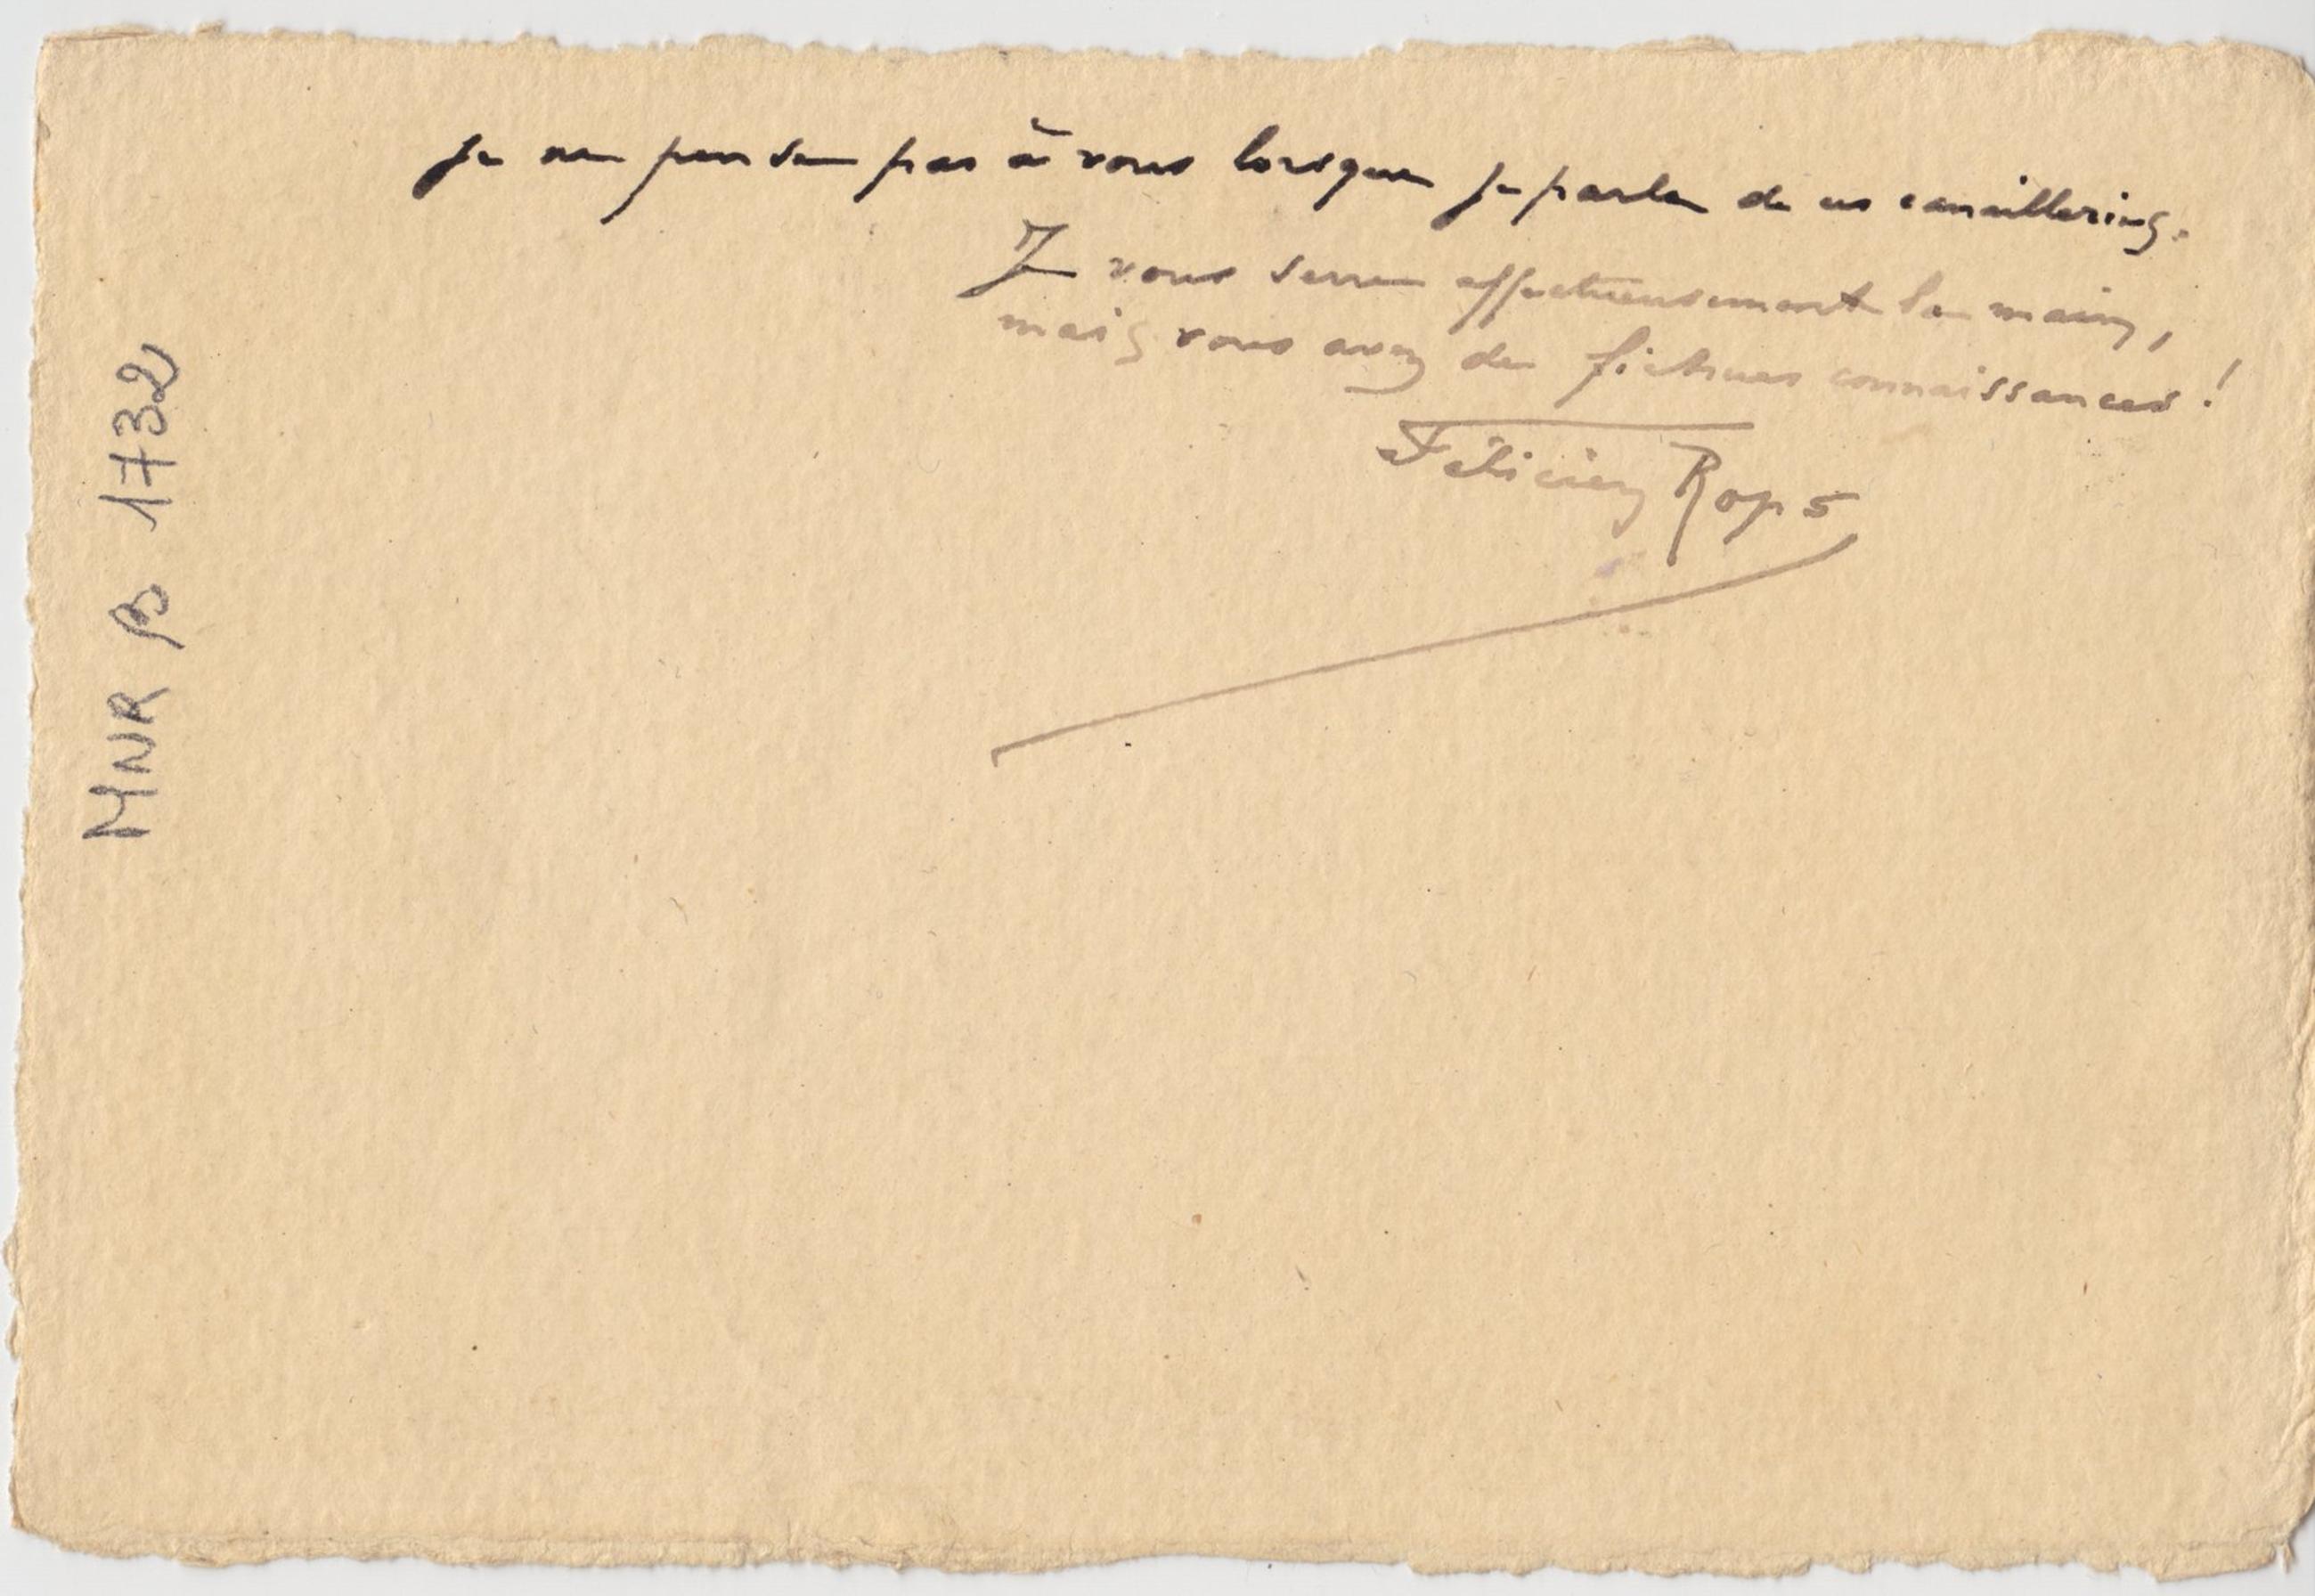 je ne pense pas à vous lorsque je parle de ces canailleries.
Je vous serre affectueusement la main,
mais vous avez de fichues connaissances !
Félicien Rops
MNR 1732